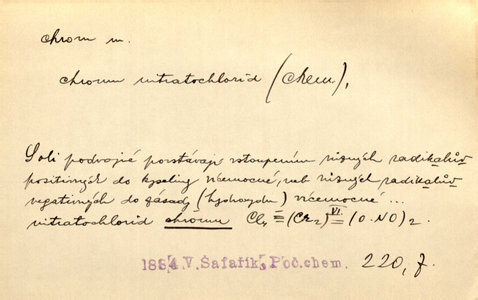 chrom m.
chromu nitratochlorid (chem),
Soli podvojné povstávají vstoupením různých radikalův
positivných do kyseliny věcmocné, neb různých radikalův
negativných do zásady (hydroxydu) věcmocné...
nitratochlorid chromu Cl₄ = (Cr₂) VI = (O·NO)₂.
1884 V. Šafařík, Poč. chem. 220, 7.